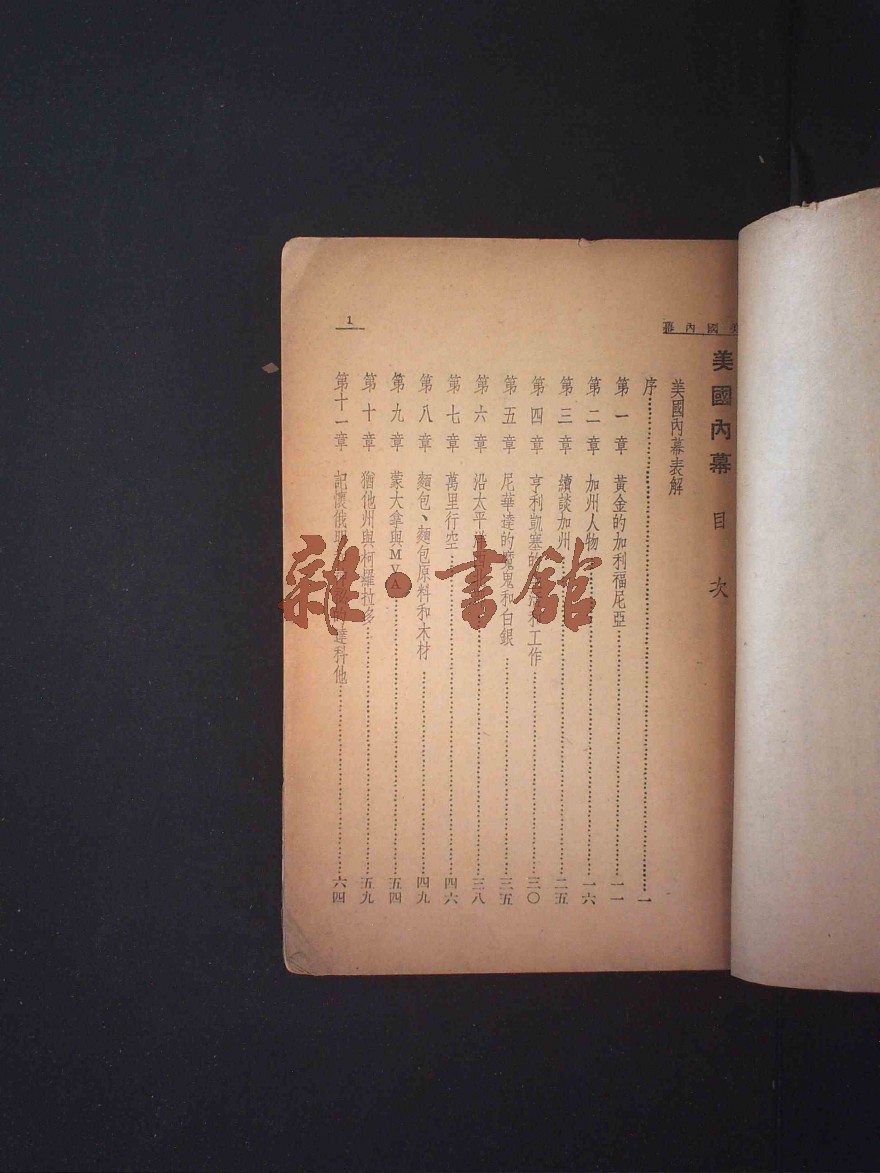 美國內幕 目次
美國內幕表解
序 一
第一章 黃金的加利福尼亞 一一
第二章 加州人物 一六
第三章 續談加州 二五
第四章 亨利凱塞的 和工作 三〇
第五章 尼華達的魔鬼和白銀 三五
第六章 沿太平洋 三八
第七章 萬里行空 四六
第八章 麵包、麵包原料和木材 四九
第九章 蒙大拿與MVA 五四
第十章 猶他州與柯羅拉多 五九
第十一章 記懷俄明 達科他 六四
國內幕
1
雜·書館